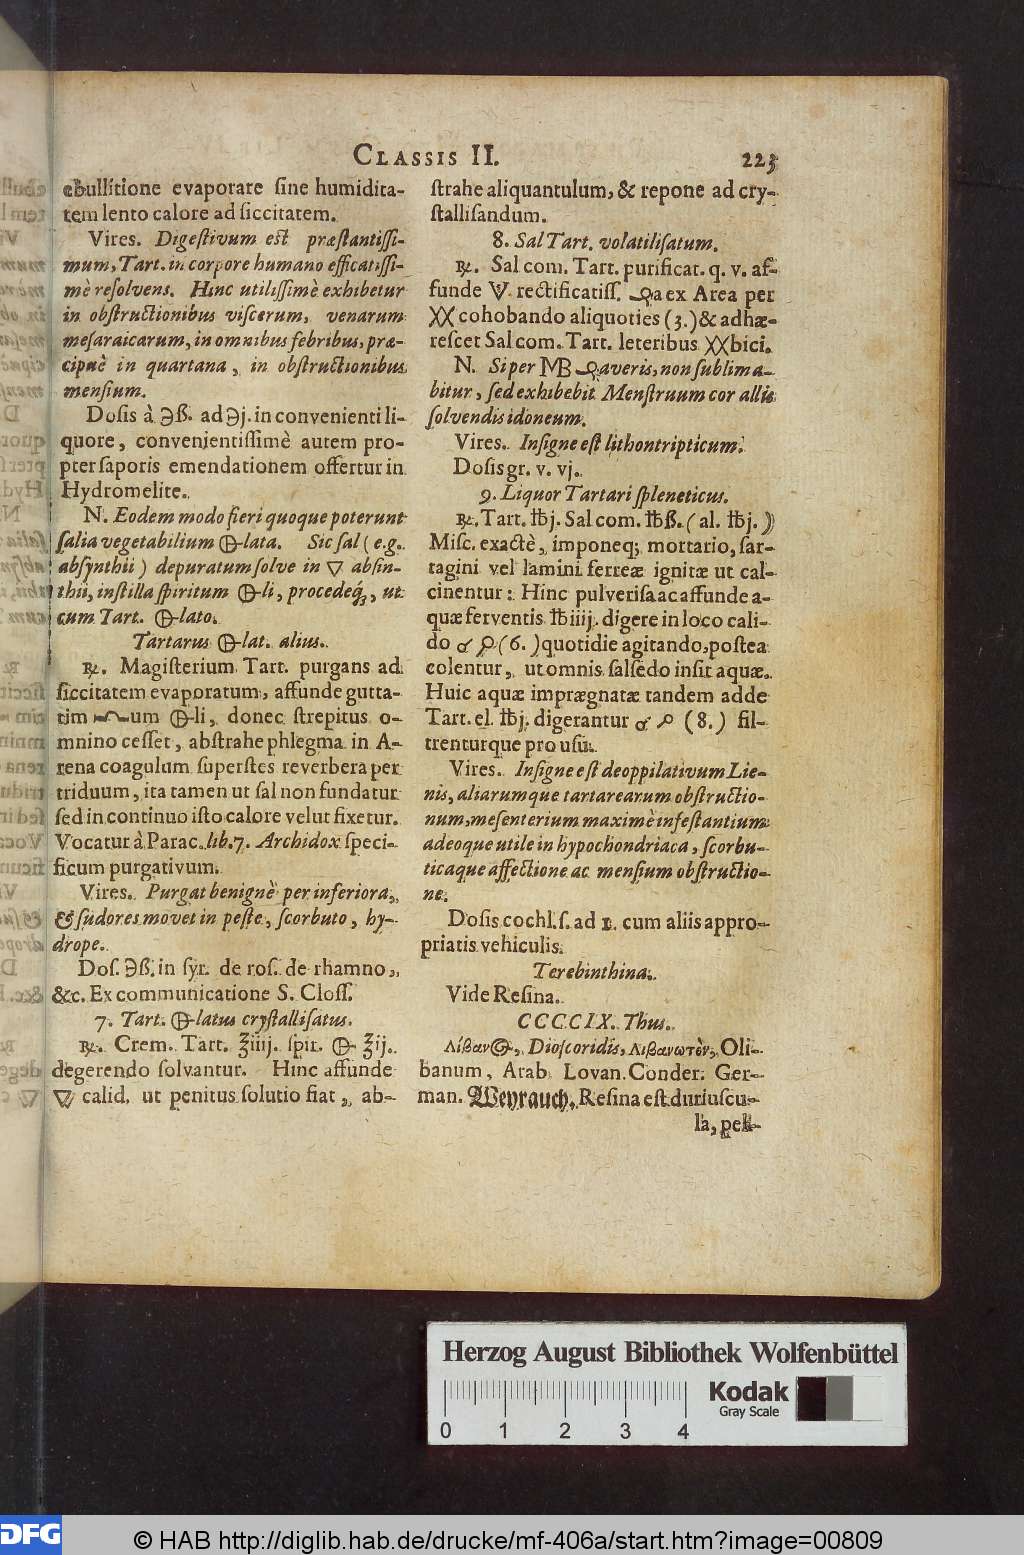 CLASSIS II. 223
ebullitione evaporare sine humidita-
tem lento calore ad siccitatem.
Vires. Digestivum est præstantissi-
mum, Tart. in corpore humano efficatissi-
mè resolvens. Hinc utilissimè exhibetur
in obstructionibus viscerum, venarum
mesaraicarum, in omnibus febribus, præ-
cipuè in quartana, in obstructionibus
mensium.
Dosis à ℈ß. ad ℈j. in convenienti li-
quore, convenientissimè autem pro-
pter saporis emendationem offertur in
Hydromelite.
N. Eodem modo fieri quoque poterunt
salia vegetabilium 🜕-lata. Sic sal (e.g.
absynthii) depuratum solve in ▽ absin-
thii, instilla spiritum 🜕-li, procedeq́;, ut
cum Tart. 🜕-lato.
Tartarus 🜕-lat. alius.
℞. Magisterium Tart. purgans ad
siccitatem evaporatum, affunde gutta-
tim um 🜕-li, donec strepitus o-
mnino cesset, abstrahe phlegma in A-
rena coagulum superstes reverbera per
triduum, ita tamen ut sal non fundatur
sed in continuo isto calore velut fixetur.
Vocatur à Parac. lib. 7. Archidox speci-
ficum purgativum.
Vires. Purgat benignè per inferiora,
& sudores movet in peste, scorbuto, hy-
drope.
Dos. ℈ß. in syr. de ros. de rhamno,
&c. Ex communicatione S. Closs.
7. Tart. 🜕-latus crystallisatus.
℞. Crem. Tart. ℥iiij. spir. 🜕 ℥ij.
degerendo solvantur. Hinc affunde
▽ calid. ut penitus solutio fiat, ab-
strahe aliquantulum, & repone ad cry-
stallisandum.
8. Sal Tart. volatilisatum.
℞. Sal com. Tart. purificat. q. v. af-
funde rectificatiss. a ex Area per
XX cohobando aliquoties (3.) & adhæ-
rescet Sal com. Tart. leteribus XXbici.
N. Si per MB averis, non sublima-
bitur, sed exhibebit Menstruum cor allis
solvendis idoneum.
Vires. Insigne est lithontripticum.
Dosis gr. v. vj.
9. Liquor Tartari spleneticus.
℞. Tart. ℔j. Sal com. ℔ß. (al. ℔j.)
Misc. exactè, imponeq; mortario, sar-
tagini vel lamini ferreæ ignitæ ut cal-
cinentur: Hinc pulverisa ac affunde a-
quæ ferventis ℔iiij. digere in loco cali-
do (6.) quotidie agitando, postea
colentur, ut omnis salsedo insit aquæ.
Huic aquæ imprægnatæ tandem adde
Tart. el. ℔j. digerantur (8.) fil-
trenturque pro usu.
Vires. Insigne est deoppilativum Lie-
nis, aliarumque tartarearum obstructio-
num, mesenterium maximè infestantium:
adeoque utile in hypochondriaca, scorbu-
ticaque affectione ac mensium obstructio-
ne.
Dosis cochl. s. ad 1. cum aliis appro-
priatis vehiculis.
Terebinthina.
Vide Resina.
CCCCIX. Thus.
Λίβανος, Dioscoridis, λιβανωτὸν, Oli-
banum, Arab. Lovan. Conder. Ger-
man. Weyrauch. Resina est duriuscu-
la, pel-
Herzog August Bibliothek Wolfenbüttel
Kodak
Gray Scale
0 1 2 3 4
DFG
© HAB http://diglib.hab.de/drucke/mf-406a/start.htm?image=00809